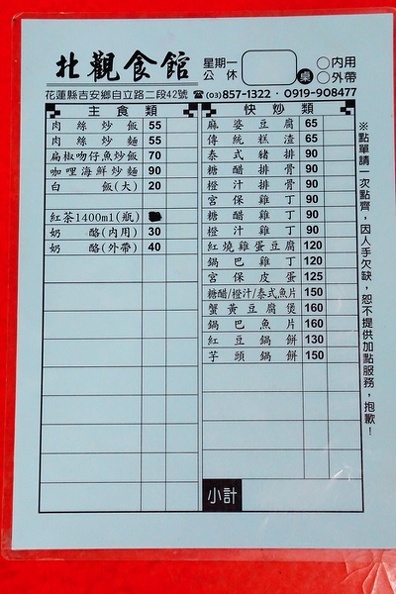 北觀食館
星期一公休
桌
○內用
○外帶
花蓮縣吉安鄉自立路二段42號 ☎(03)857-1322·0919-908477
主食類
肉絲炒飯 55
肉絲炒麵 55
扁椒吻仔魚炒飯 70
咖哩海鮮炒麵 90
白飯(大) 20
紅茶1400ml(瓶)
奶酪(內用) 30
奶酪(外帶) 40
快炒類
麻婆豆腐 65
傳統糕渣 65
泰式豬排 90
糖醋排骨 90
橙汁排骨 90
宮保雞丁 90
糖醋雞丁 90
橙汁雞丁 90
紅燒雞蛋豆腐 120
鍋巴雞丁 120
宮保皮蛋 125
糖醋/橙汁/泰式魚片 150
蟹黃豆腐煲 160
鍋巴魚片 160
紅豆鍋餅 130
芋頭鍋餅 150
小計
※點單請一次點齊，因人手欠缺，恕不提供加點服務，抱歉！